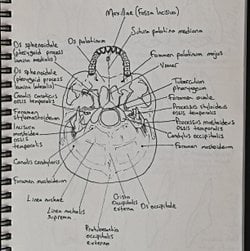 Maxillae (Fossa incisiva)
Os palatinum
Sutura palatina mediana
Os sphenoidale
(pterygoid process
lamina medialis)
Os sphenoidale
(pterygoid process
lamina lateralis)
Canalis caroticus
ossis temporalis
Foramen
stylomastoideum
Incisura
mastoidea
ossis
temporalis
Canalis condylaris
Foramen mastoideum
Linea nuchae
Linea nuchalis
suprema
Protuberantia
occipitalis
externa
Foramen palatinum majus
Vomer
Tuberculum
pharyngeum
Foramen ovale
Processus styloideus
ossis temporalis
Processus mastoideus
ossis temporalis
Condylus occipitalis
Foramen mastoideum
Crista
occipitalis
externa
Os occipitale